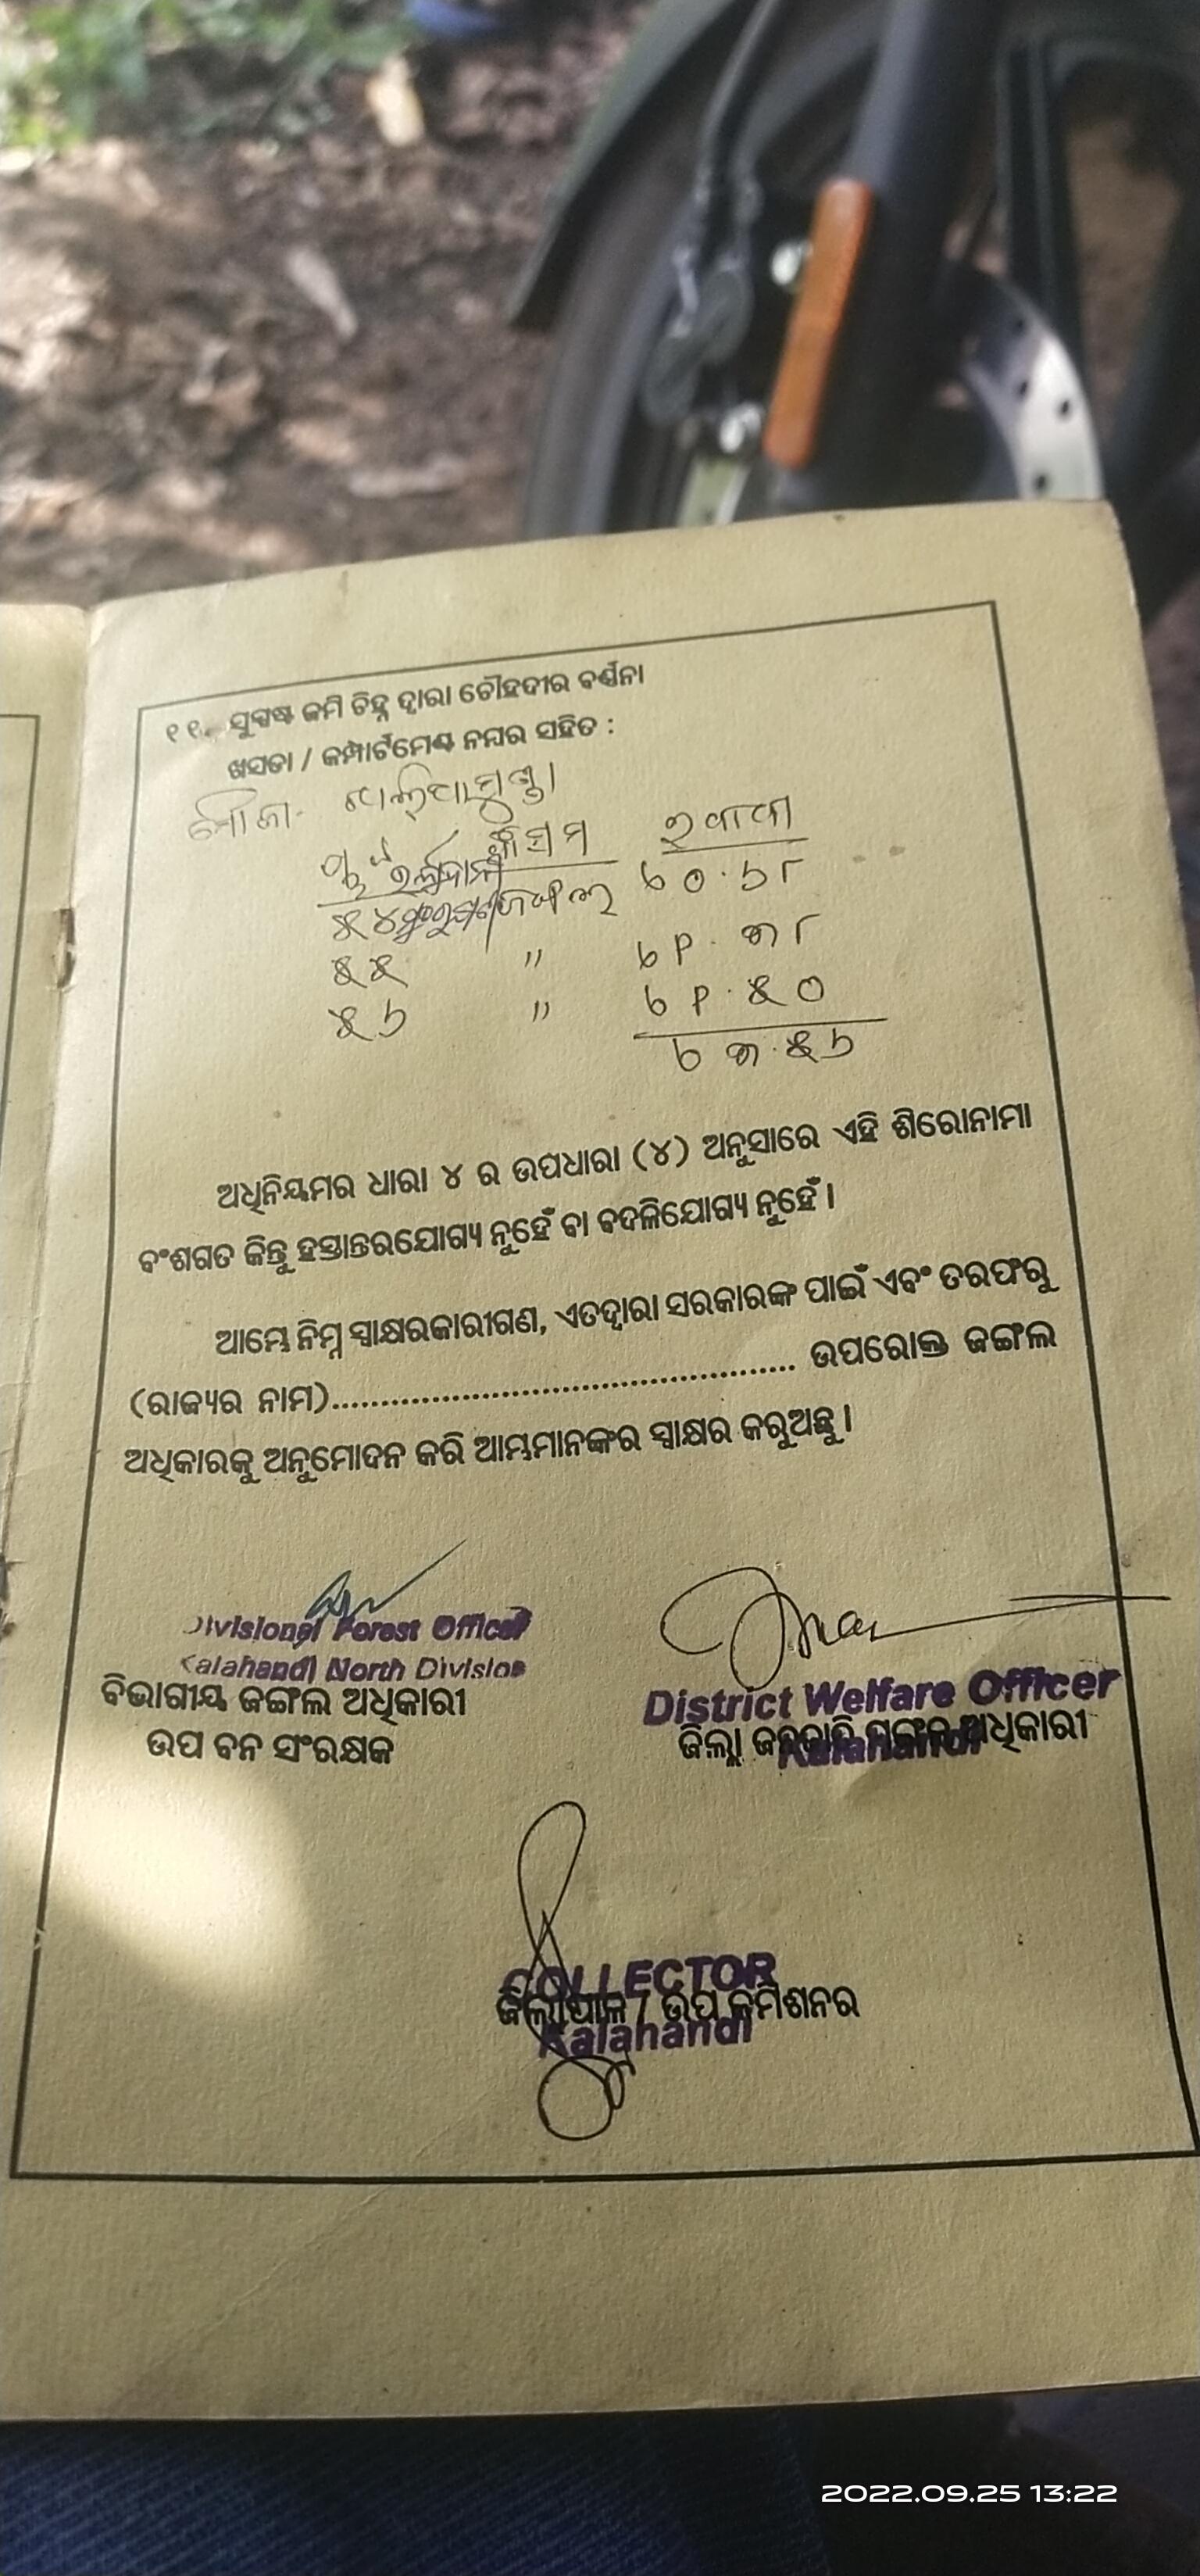 ୧୧. ସୁସ୍ପଷ୍ଟ ଜମି ଚିହ୍ନ ଦ୍ୱାରା ଚୌହଦୀର ବର୍ଣ୍ଣନା
ଖସଡା / କମ୍ପାର୍ଟମେଣ୍ଟ ନମ୍ବର ସହିତ :
ମୌଜା-
କିସମ
୫୪ ୬୦.୨୮
୫୫ " ୬୧.୩୮
୫୬ " ୬୧.୫୦
ଅଧିନିୟମର ଧାରା ୪ ର ଉପଧାରା (୪) ଅନୁସାରେ ଏହି ଶିରୋନାମା
ବଂଶଗତ କିନ୍ତୁ ହସ୍ତାନ୍ତରଯୋଗ୍ୟ ନୁହେଁ ବା ବଦଳିଯୋଗ୍ୟ ନୁହେଁ ।
ଆମ୍ଭେ ନିମ୍ନ ସ୍ୱାକ୍ଷରକାରୀଗଣ, ଏତଦ୍ୱାରା ସରକାରଙ୍କ ପାଇଁ ଏବଂ ତରଫରୁ
(ରାଜ୍ୟର ନାମ)................................................ ଉପରୋକ୍ତ ଜଙ୍ଗଲ
ଅଧିକାରକୁ ଅନୁମୋଦନ କରି ଆମ୍ଭମାନଙ୍କର ସ୍ୱାକ୍ଷର କରୁଅଛୁ ।
Divisional Forest Officer
Kalahandi North Division
ବିଭାଗୀୟ ଜଙ୍ଗଲ ଅଧିକାରୀ
ଉପ ବନ ସଂରକ୍ଷକ
District Welfare Officer
ଜିଲ୍ଲା ଜନଜାତି ମଙ୍ଗଳ ଅଧିକାରୀ
Kalahandi
COLLECTOR
ଜିଲ୍ଲାପାଳ / ଉପ କମିଶନର
Kalahandi
2022.09.25 13:22